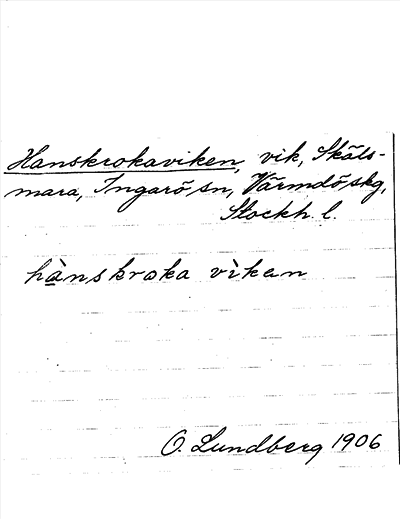 Hanskrokaviken, vik, Skäls-
mara, Ingarö sn, Värmdö skg,
Stockh. l.
hànskroka vìken
O. Lundberg 1906